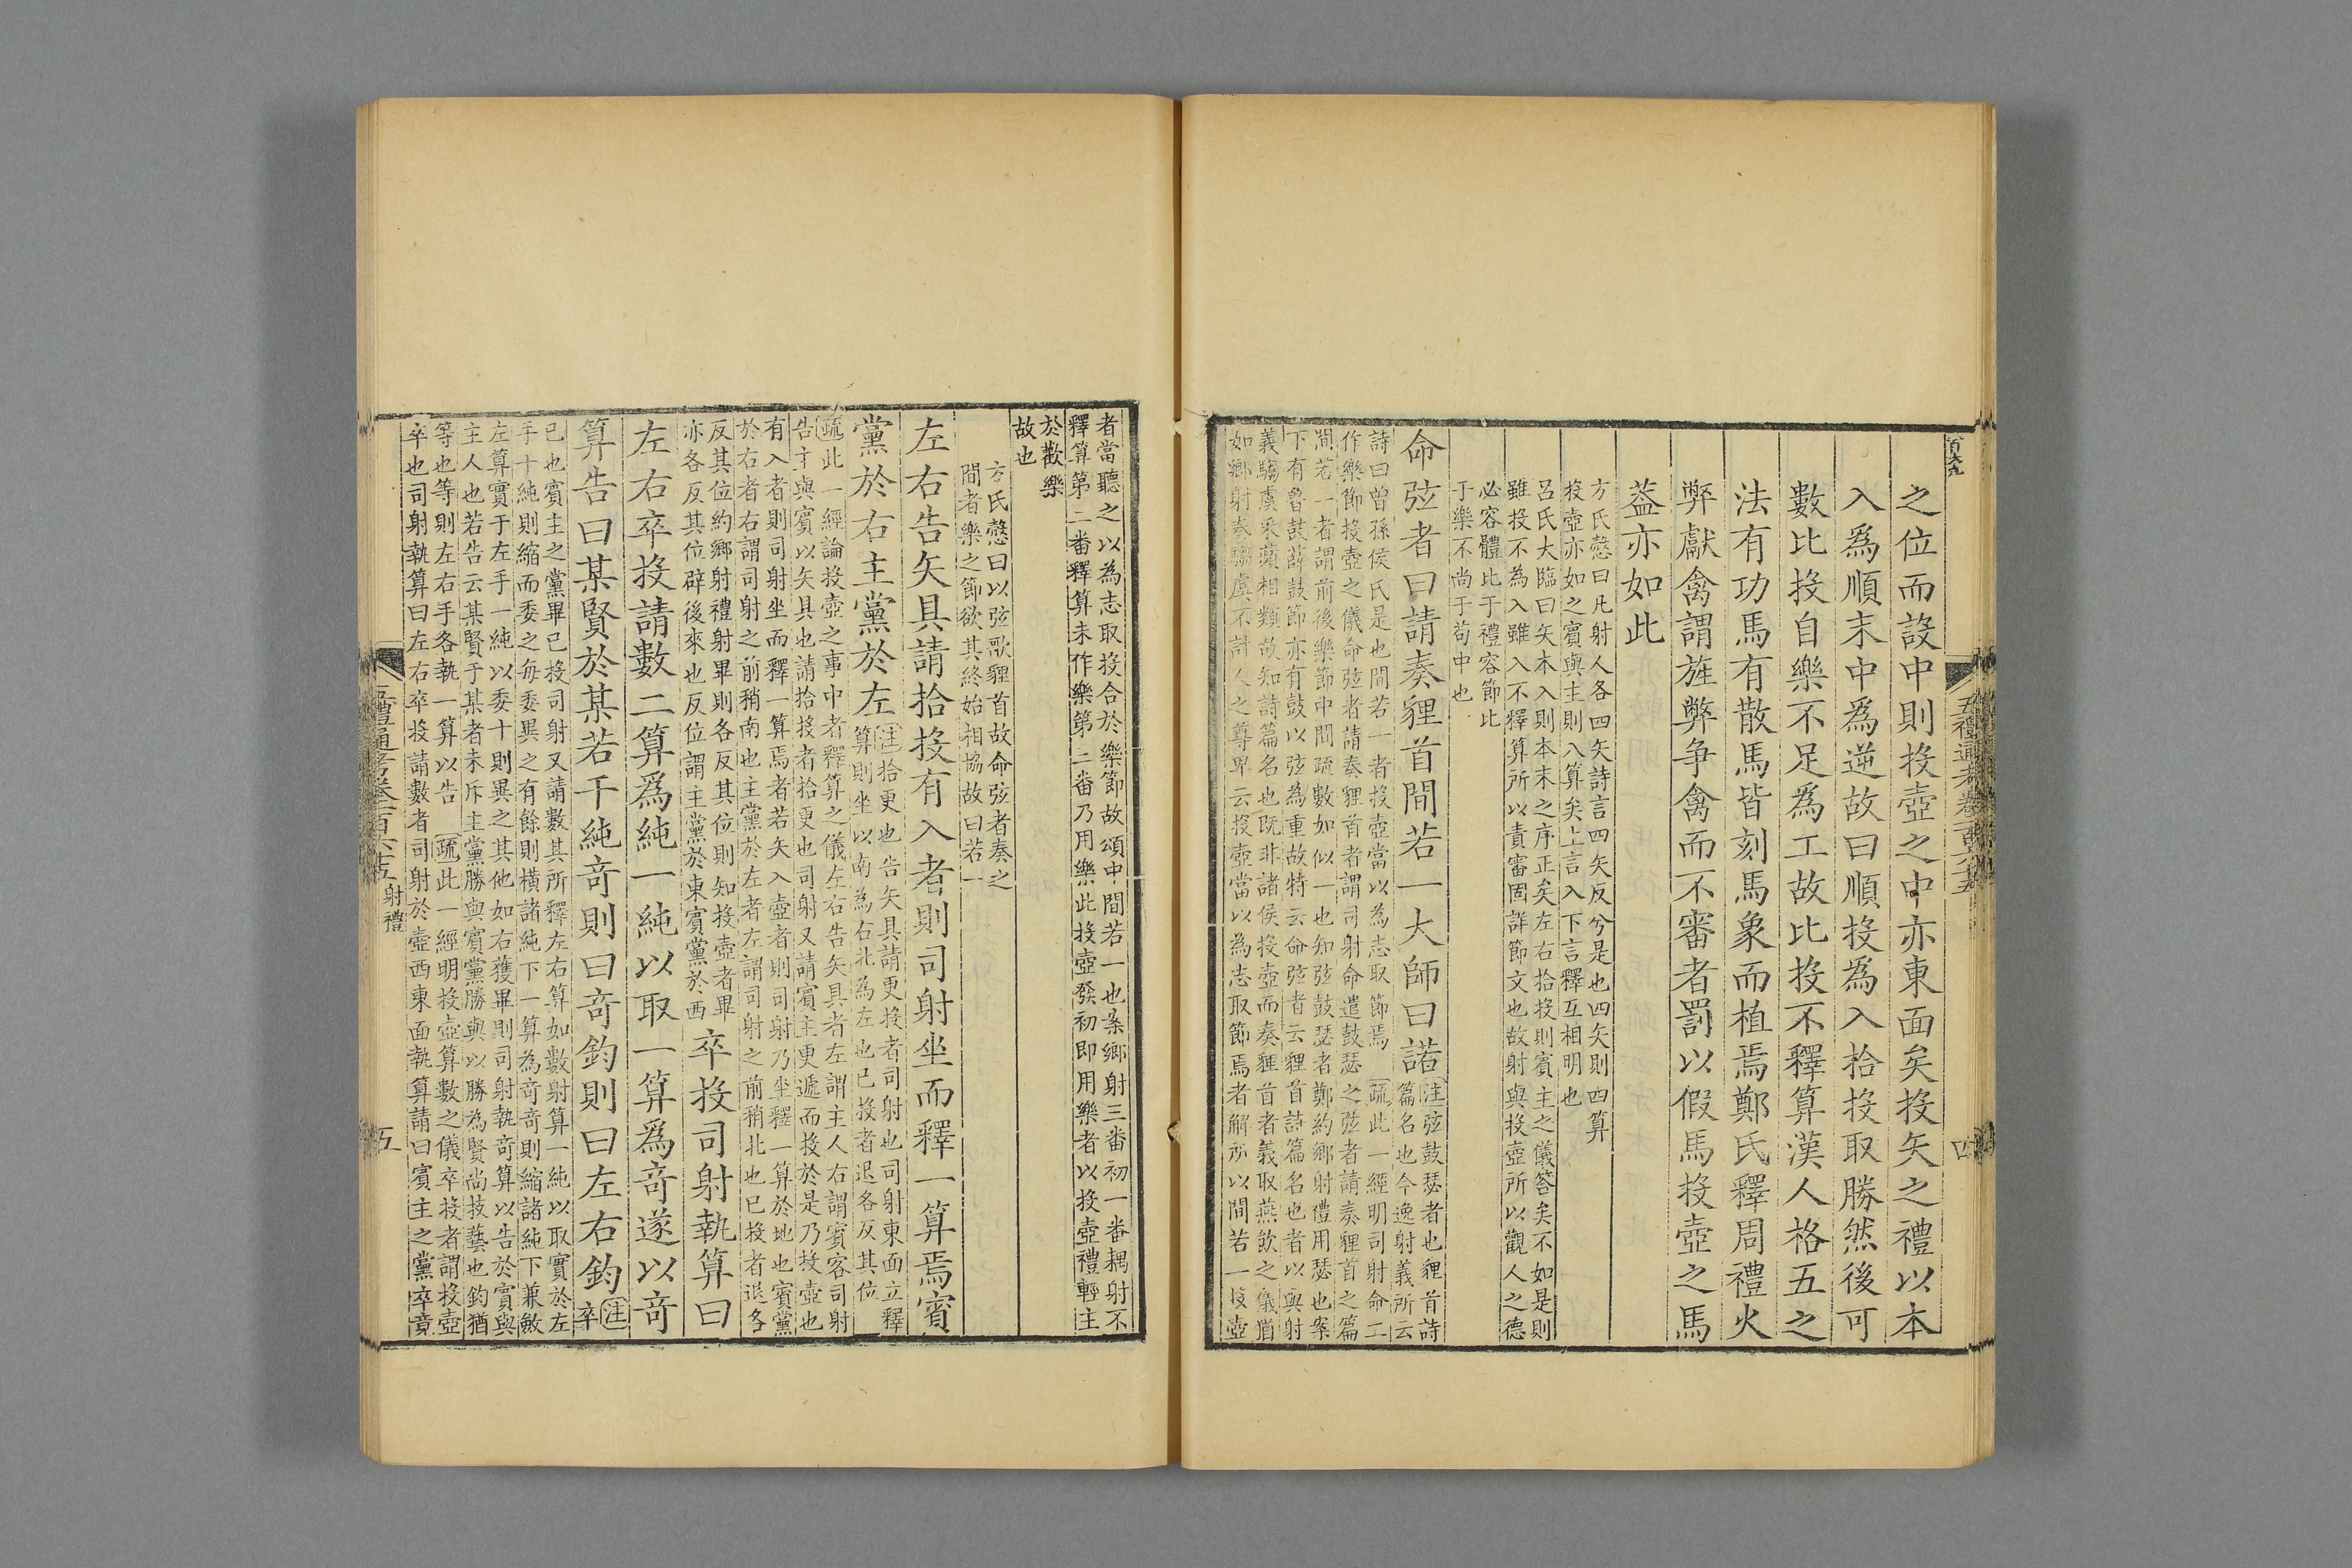 之位而設中則投壺之中亦東面矣投矢之禮以本
入爲順末中爲逆故曰順投爲入拾投取勝然後可
數比投自樂不足爲工故比投不釋算漢人格五之
法有功馬有散馬皆刻馬象而植焉鄭氏釋周禮火
弊獻禽謂旌弊爭禽而不審者罰以假馬投壺之馬
葢亦如此
方氏慤曰凡射人各四矢詩言四矢反兮是也四矢則四算
投壺亦如之賓與主則八算矣上言入下言釋互相明也
呂氏大臨曰矢本入則本末之序正矣左右拾投則賓主之儀答矣不如是則
雖投不為入雖入不釋算所以責審固詳節文也故射與投壺所以觀人之德
必容體比于禮容節比
于樂不尚于苟中也
命弦者曰請奏貍首間若一大師曰諾
注弦鼓瑟者也貍首詩
篇名也今逸射義所云
詩曰曾孫侯氏是也間若一者投壺當以為志取節焉 疏此一經明司射命工
作樂節投壺之儀命弦者請奏貍首者謂司射命遣鼓瑟之弦者請奏貍首之篇
間若一者謂前後樂節中間疏數如似一也知弦鼓瑟者鄭約鄉射禮用瑟也案
下有魯鼓薛鼓節亦有鼓以弦為重故特云命弦者云貍首詩篇名也者以與射
義騶虞采蘋相類故知詩篇名也既非諸侯投壺而奏貍首者義取燕飲之儀猶
如鄉射奏騶虞不計人之尊卑云投壺當以為志取節焉者解所以間若一投壺
五禮通考卷一百六十五
四
者當聽之以為志取投合於樂節故頌中間若一也案鄉射三番初一番耦射不
釋算第二番釋算未作樂第二番乃用樂此投壺發初即用樂者以投壺禮輕主
於歡樂
故也
方氏慤曰以弦歌貍首故命弦者奏之
間者樂之節欲其終始相協故曰若一
左右告矢具請拾投有入者則司射坐而釋一算焉賓
黨於右主黨於左
注拾更也告矢具請更投者司射也司射東面立釋
算則坐以南為右北為左也已投者退各反其位
疏此一經論投壺之事中者釋算之儀左右告矢具者左謂主人右謂賓客司射
告主與賓以矢具也請拾投者拾更也司射又請賓主更遞而投於是乃投壺也
有入者則司射坐而釋一算焉者若矢入壺者則司射乃坐釋一算於地也賓黨
於右者右謂司射之前稍南也主黨於左者左謂司射之前稍北也已投者退各
反其位約鄉射禮射畢則各反其位則知投壺者畢
亦各反其位辟後來也反位謂主黨於東賓黨於西
卒投司射執算曰
左右卒投請數二算爲純一純以取一算爲奇遂以奇
算告曰某賢於某若干純奇則曰奇鈞則曰左右鈞
注
卒
已也賓主之黨畢已投司射又請數其所釋左右算如數射算一純以取實於左
手十純則縮而委之每委異之有餘則橫諸純下一算為奇奇則縮諸純下兼斂
左算實于左手一純以委十則異之其他如右獲畢則司射執奇算以告於賓與
主人也若告云某賢于某者未斥主黨勝與賓黨勝與以勝為賢尚技藝也鈞猶
等也等則左右手各執一算以告 疏此一經明投壺算數之儀卒投者謂投壺
卒也司射執算曰左右卒投請數者司射於壺西東面執算請曰賓主之黨卒竟
五禮通考卷一百六十五 射禮
五